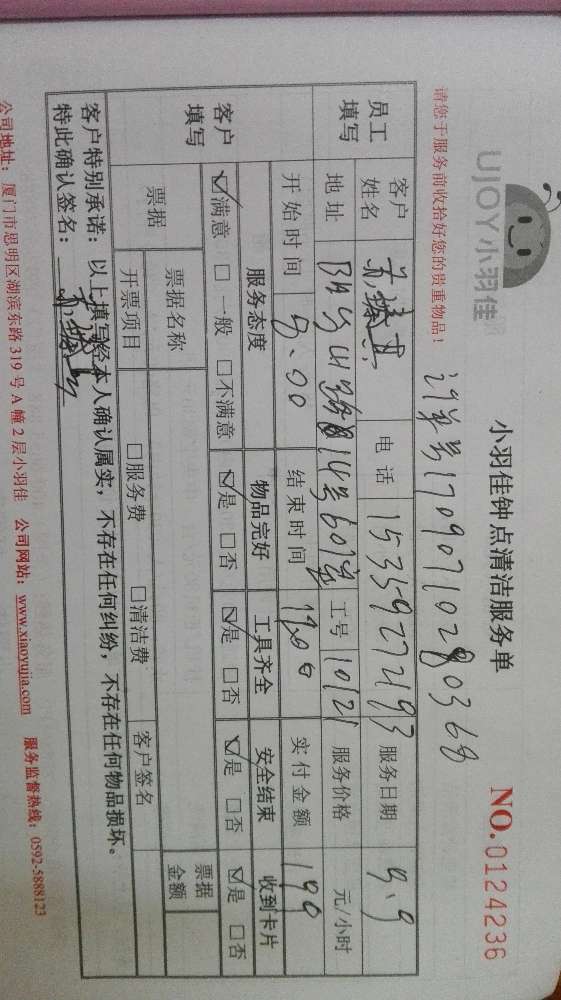 UJOY小羽佳
小羽佳钟点清洁服务单
NO.0124236
请您于服务前收拾好您的贵重物品！
订单号17090710280368
员工填写
客户姓名
电话 15359272193
服务日期 9.9
地址
14号607室
工号 10121
服务价格 元/小时
开始时间
结束时间
实付金额
客户填写
服务态度 物品完好 工具齐全 安全结束 收到卡片
☑满意 □一般 □不满意 ☑是 □否 ☑是 □否 ☑是 □否 ☑是 □否
票据 票据名称 票据金额
开票项目 □服务费 □清洁费 客户签名
客户特别承诺：以上填写经本人确认属实，不存在任何纠纷，不存在任何物品损坏。
特此确认签名：
公司地址：厦门市思明区湖滨东路319号A幢2层小羽佳 公司网站：www.xiaoyujia.com 服务监督热线：0592-5888123